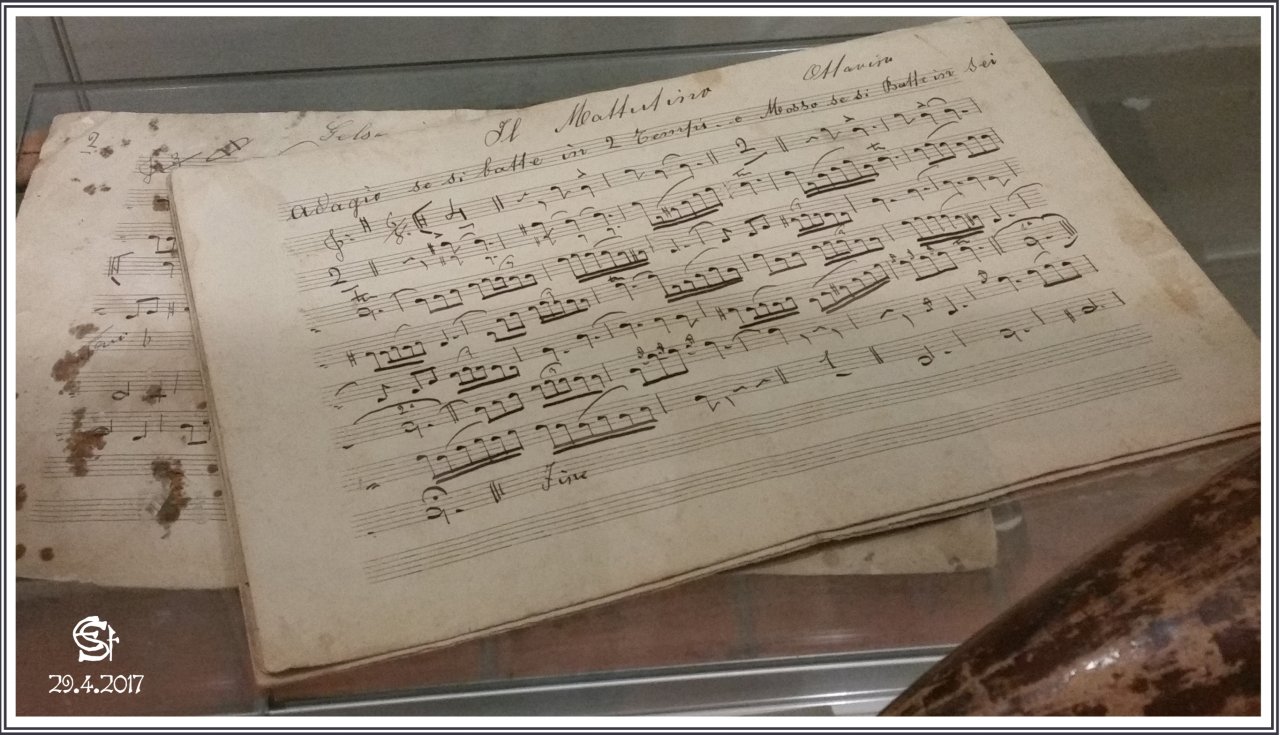 Il Mattutino Ottavino
adagio se si batte in 2 Tempi. e Mosso se si Batte in Sei
2
2
2
Fine
29.4.2017